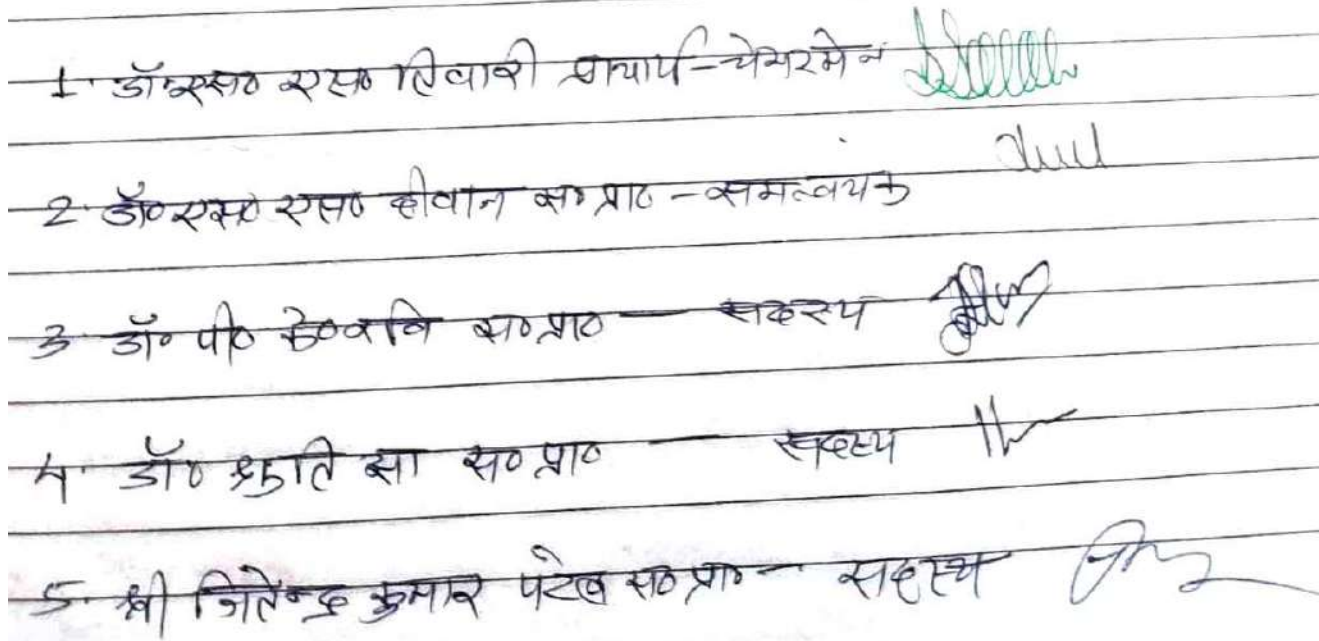 1. डॉ० एस० एस० तिवारी प्राचार्य - चेयरमेन
2. डॉ० एस० एस० दीवान स० प्रा० - समन्वयक
3 डॉ० पी० के० रवि स० प्रा० — सदस्य
4. डॉ० श्रुति झा स० प्रा० — सदस्य
5. श्री जितेन्द्र कुमार पटेल स० प्रा० - सदस्य